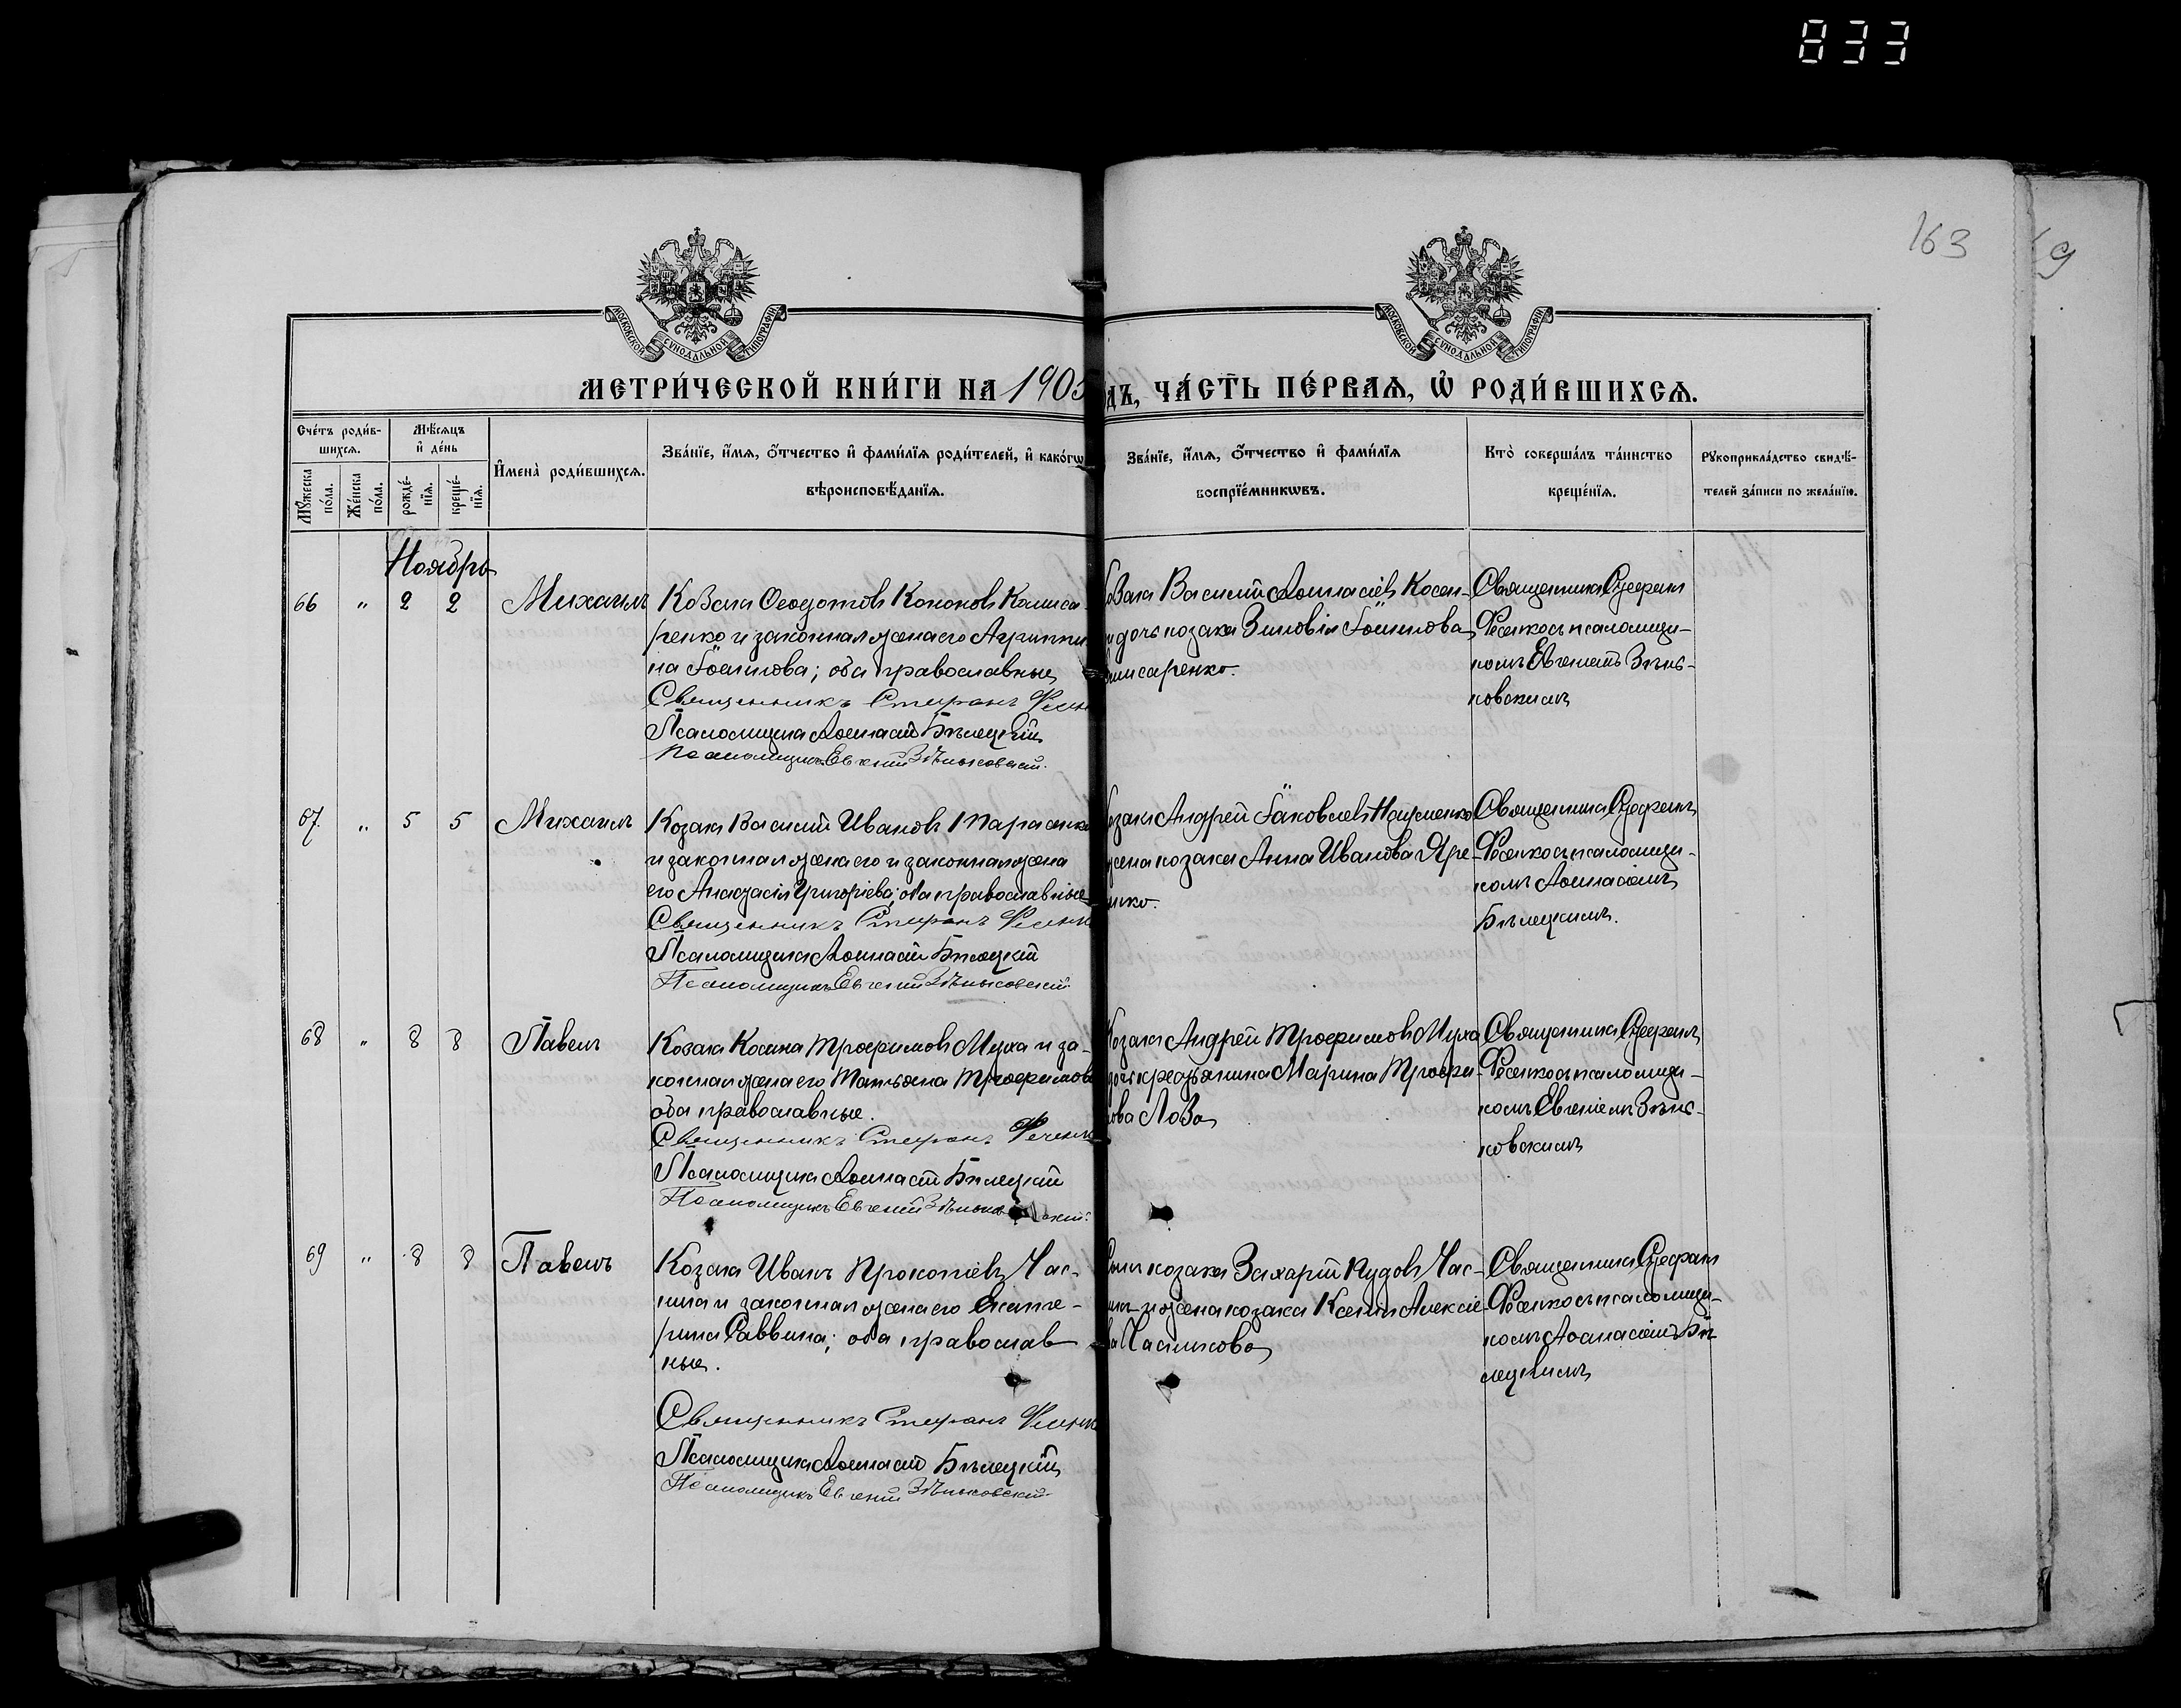 833
163
9
МОСКОВСКОЙ СУНОДАЛЬНОЙ ТИПОГРАФІИ
МОСКОВСКОЙ СУНОДАЛЬНОЙ ТИПОГРАФІИ
МЕТРИ́ЧЕСКОЙ КНИ́ГИ НА 1905
дъ, ЧА́СТЬ ПЕ́РВАѦ, Ѡ҆ РОДИ́ВШИХСѦ.
Сче́тъ роди́в-
шихсѧ.
Мѣ́сѧцъ
и҆ де́нь
Мꙋ́жеска
по́ла.
Же́нска
по́ла.
рожде́-
нїѧ.
креще́-
нїѧ.
И҆мена̀ роди́вшихсѧ.
Зва́нїе, и҆́мѧ, ѻ҆́тчество и҆ фами́лїѧ роди́телей, и҆ како́гѡ
вѣроисповѣ́данїѧ.
Зва́нїе, и҆́мѧ, ѻ҆́тчество и҆ фами́лїѧ
воспрїе́мникѡвъ.
Кто̀ соверша́лъ та́инство
креще́нїѧ.
Рꙋкоприкла́дство свидѣ́-
телей за́писи по жела́нїю.
Ноябрь
66 " 2 2 Михаилъ
Козакъ Ѳеодотовъ Кононовъ Комиса-
ренко и законная жена его Агриппи
на Іоаннова; оба православные
Священникъ Стефанъ Фесен
Псаломщикъ Аѳанасій Бѣлецкій
Псаломщикъ Евгеній Зѣньковскій.
Козакъ Василій Аѳанасіевъ Косен-
и дочь козака Зиновія Іоаннова
мисаренко.
Священникъ Стефанъ
Фесенко съ псаломщи-
комъ Евгеніемъ Зѣнь-
ковскимъ
67. " 5 5 Михаилъ
Козакъ Василій Ивановъ Тарасенко
и законная жена его и законная жена
его Анастасія Григоріева; оба православные
Священникъ Стефанъ Фесенк
Псаломщикъ Аѳанасій Бѣлецкій
Псаломщикъ Евгеній Зѣньковскій.
озакъ Андрей Іаковлевъ Науменко
жена козака Анна Иванова Яре-
нко.
Священникъ Стефанъ
Фесенко съ псаломщи-
комъ Аѳанасіемъ
Бѣлецкимъ.
68 " 8 8 Павелъ
Козакъ Косма Трофимовъ Муха и за-
конная жена его Татьяна Трофимова
оба православные.
Священникъ Стефанъ Фесенк
Псаломщикъ Аѳанасій Бѣлецкій
Псаломщикъ Евгеній Зѣньковскій.
Козакъ Андрей Трофимовъ Муха
дочь крестьянина Марина Трофи-
ова Лоза
Священникъ Стефанъ
Фесенко съ псаломщи-
комъ Евгеніемъ Зѣнь-
ковскимъ
69 " 8 8 Павелъ
Козакъ Иванъ Прокопіевъ Час-
никъ и законная жена его Екате-
рина Саввина; оба православ
ные.
Священникъ Стефанъ Фесенк
Псаломщикъ Аѳанасій Бѣлецкій
Псаломщикъ Евгеній Зѣньковскій.
Сынъ козака Захарій Іудовъ Час-
никъ и жена козака Ксенія Алексіе-
ва Часникова
Священникъ Стефанъ
Фесенко съ псаломщи-
комъ Аѳанасіемъ Бѣ-
лецкимъ